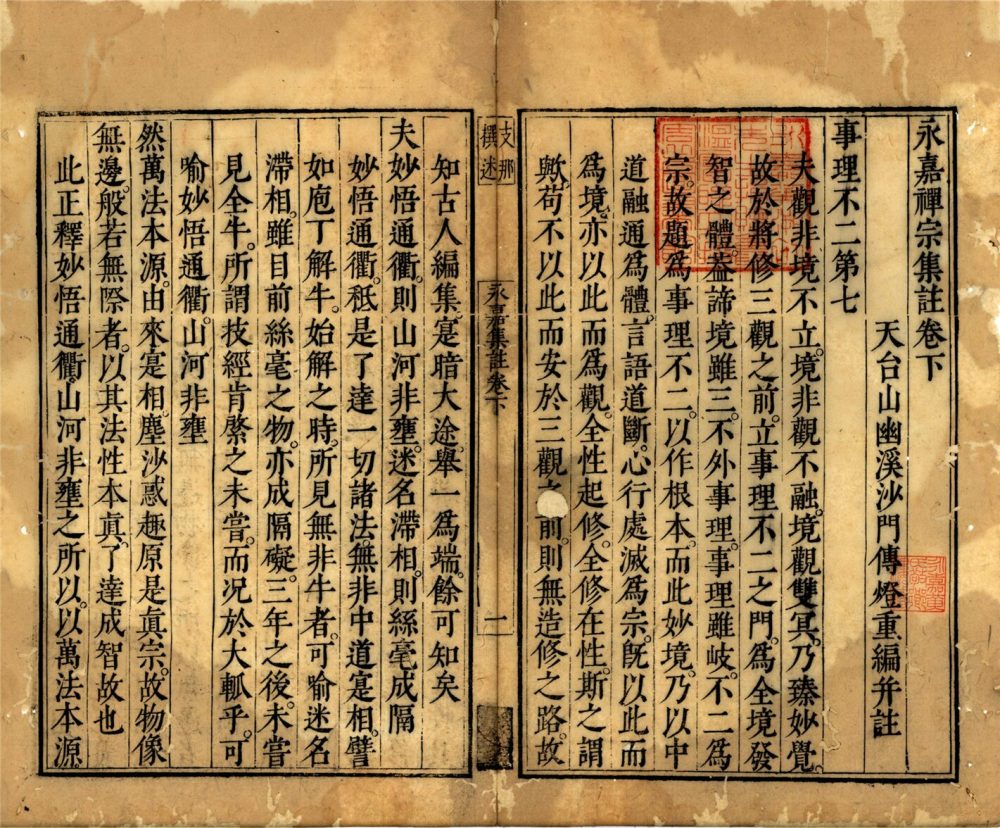 永嘉禪宗集註卷下
天台山幽溪沙門傳燈重編并註
事理不二第七
夫觀非境不立。境非觀不融。境觀雙冥。乃臻妙覺。
故於將修三觀之前。立事理不二之門。爲全境發
智之體。葢諦境雖三。不外事理。事理雖岐。不二爲
宗。故題爲事理不二。以作根本。而此妙境。乃以中
道融通爲體。言語道斷。心行處滅爲宗。旣以此而
爲境。亦以此而爲觀。全性起修。全修在性。斯之謂
歟。苟不以此而安於三觀之前。則無造修之路。故
支那
撰述
永嘉集註卷下
一
知古人編集。寔暗大途。舉一爲端。餘可知矣
夫妙悟通衢。則山河非壅。迷名滯相。則絲毫成隔
妙悟通衢。秪是了達一切諸法無非中道寔相。譬
如庖丁解牛。始解之時。所見無非牛者。可喻迷名
滯相。雖目前絲毫之物。亦成隔礙。三年之後。未嘗
見全牛。所謂技經肯綮之未嘗。而况於大軱乎。可
喻妙悟通衢。山河非壅
然萬法本源。由來寔相。塵沙惑趣。原是眞宗。故物像
無邊。般若無際者。以其法性本眞。了達成智故也
此正釋妙悟通衢。山河非壅之所以。以萬法本源。